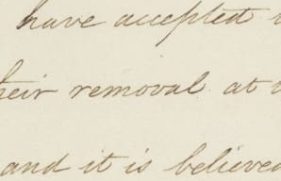 have accepted
heir removal at
and it is believed